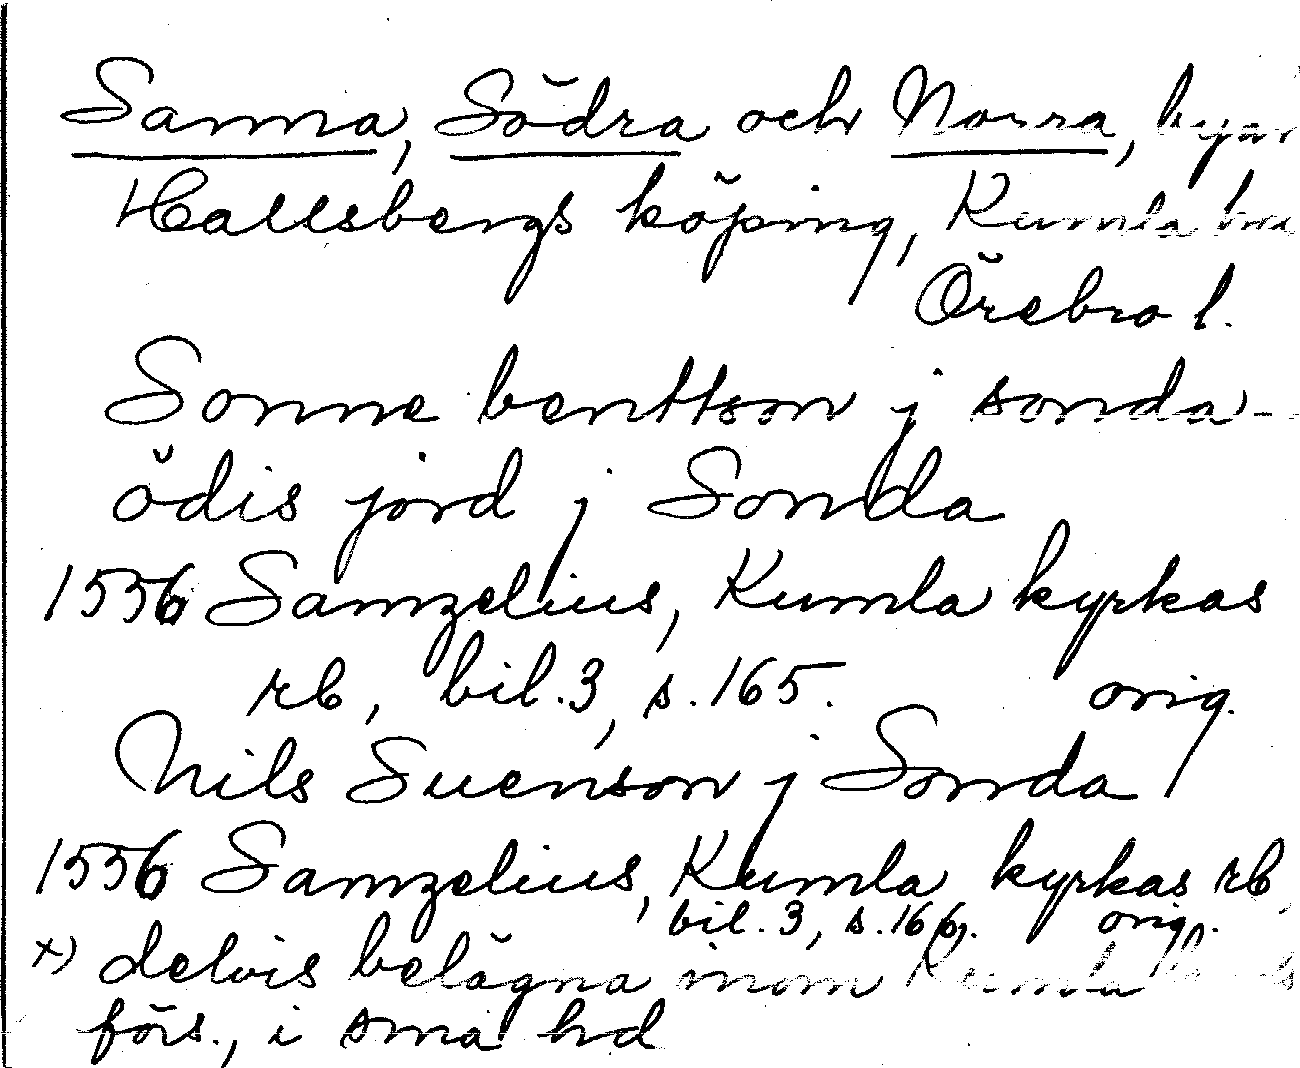 Sanna, Södra och Norra, byar
Hallsbergs köping, Kumla hd
Örebro l.
Sonne benttson j sonda -
ödis jord j Sonda
1556 Samzelius, Kumla kyrkas
rb, bil. 3, s. 165. orig.
Nils Suenson j Sonda
1556 Samzelius, Kumla kyrkas rb,
bil. 3, s. 166. orig.
x) delvis belägna inom Kumla
förs., i sma hd